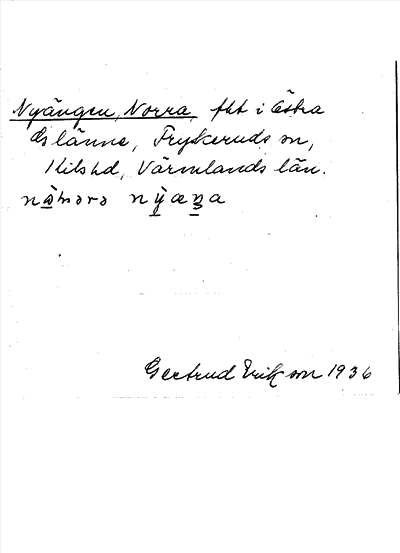 Nyängen, Norra, fht i Östra
Islänne, Frykeruds sn,
Kils hd, Värmlands län.
Gertrud Erikson 1936